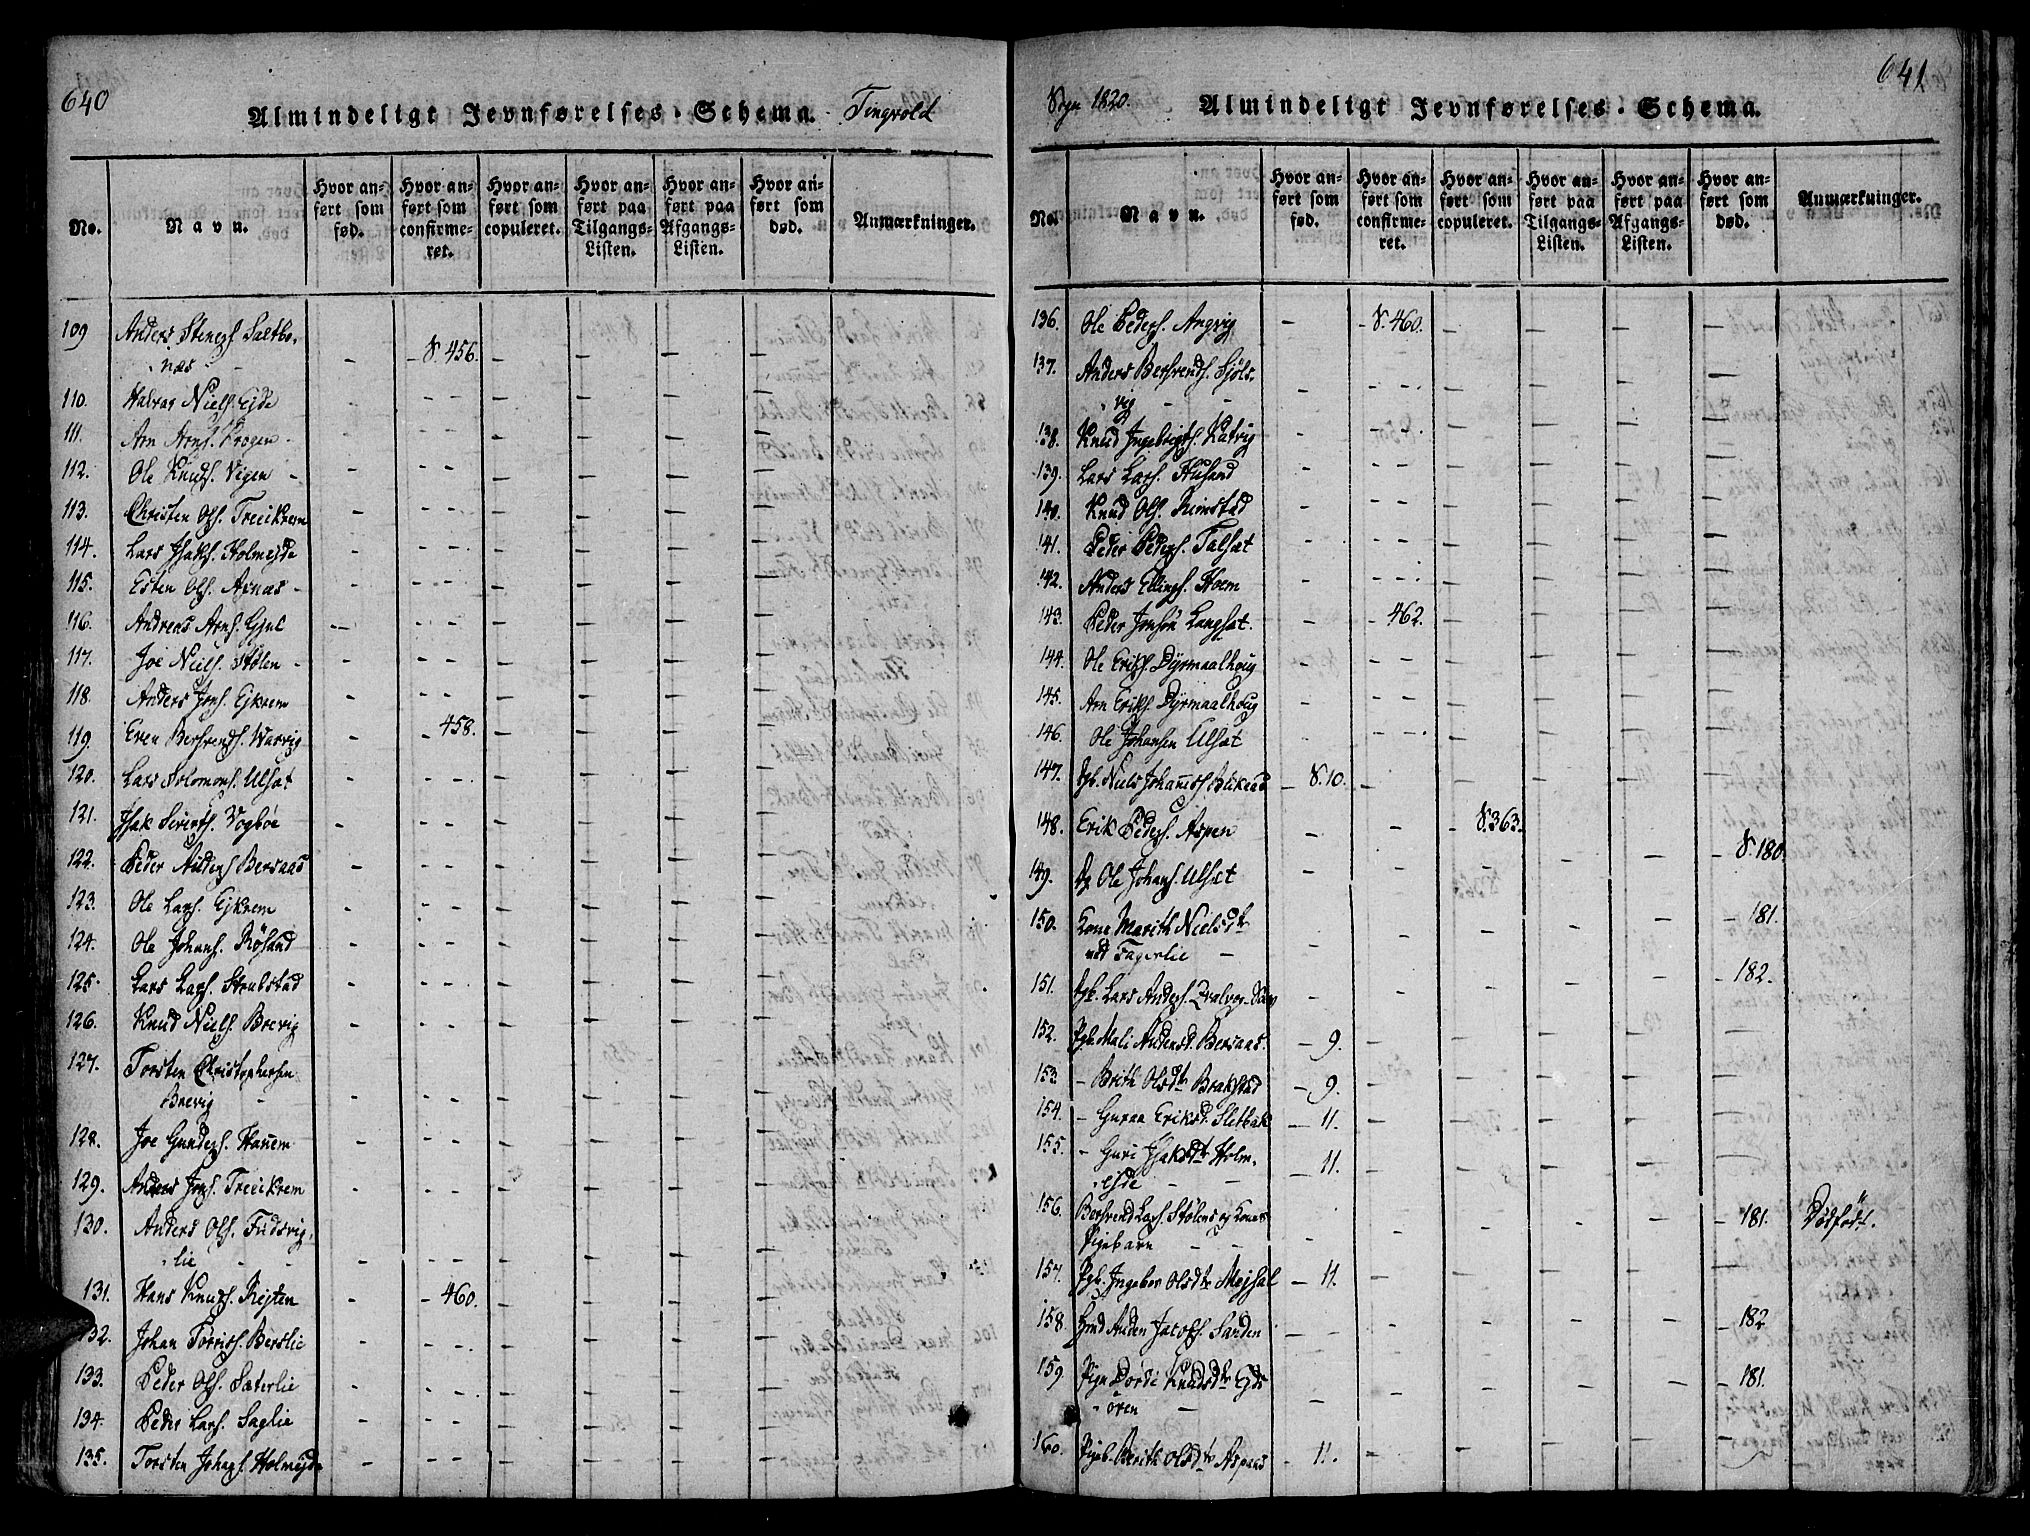 640
Almindeligt Jevnførelses-Schema.
Tingvold
No.
Navn.
Hvor anført som fød.
Hvor anført som confirmeret.
Hvor anført som copuleret.
Hvor anført paa Tilgangs-Listen.
Hvor anført paa Afgangs-Listen.
Hvor anført som død.
Anmærkninger.
109 Anders Steners. Saltbo,
næs - - S. 456. - - - -
110. Halvor Niels. Ejde - - - - - - -
111. Arn Arns. Krogen - - - - - - -
112. Ole Knuds. Vigen - - - - - - -
113. Christen Ols. Treeikrem - - - - - - -
114. Lars Isaks. Holmejde - - - - - - -
115. Esten Ols. Arnæs - - - - - - -
116. Andreas Arns. Gjul - - - - - - -
117. Joe Niels. Stølen - - - - - - -
118. Anders Jons. Ejkrem - - - - - - -
119. Even Berhrends. Warvig - - 458. - - - -
120. Lars Solomons. Ulsæt - - - - - - -
121. Isak Siverts. Vogbøe - - - - - - -
122. Peder Anders. Bersaas - - - - - - -
123. Ole Lars. Ejkrem - - - - - - -
124. Ole Johans. Røsand - - - - - - -
125. Lars Lars. Strubstad - - - - - - -
126. Knud Niels. Brevig - - - - - - -
127. Torsten Christophersen
Brevig - - - - - - -
128. Joe Gunders. Hanem - - - - - - -
129. Anders Jons. Treeikrem - - - - - - -
130. Anders Ols. Fudsvig,
lie - - - - - - -
131. Hans Knuds. Rejten - - 460. - - - -
132. Johan Torrits. Berslie - - - - - - -
133. Peder Ols. Sæterlie - - - - - - -
134. Peder Lars. Saglie - - - - - - -
135. Torsten Johans. Holmejde - - - - - - -
Sogn 1820.
Almindeligt Jevnførelses-Schema.
641
No.
Navn.
Hvor anført som fød.
Hvor anført som confirmeret.
Hvor anført som copuleret.
Hvor anført paa Tilgangs-Listen.
Hvor anført paa Afgangs-Listen.
Hvor anført som død.
Anmærkninger.
136. Ole Peders. Angvig - - S. 460. - - - -
137. Anders Berhrends. Sjøls,
vig - - - - - - -
138. Knud Ingebrigts. Katvig - - - - - - -
139. Lars Lars. Husand - - - - - - -
140. Knud Ols. Rimstad - - - - - - -
141. Peder Peders. Talsæt - - - - - - -
142. Anders Ellings. Hoem - - - - - - -
143. Peder Jonsøn Langsæt. - - 462. - - - -
144. Ole Eriks. Dyrmaalhoug - - - - - - -
145. Arn Eriks. Dyrmaalhoug - - - - - - -
146. Ole Johansen Ulsæt - - - - - - -
147. Pgb. Niels Johanes. - S. 10. - - - - -
148. Erik Peders. Aspen - - - S. 363. - - -
149. Ole Johans. Ulsæt - - - - - - S. 180.
150. Kone Marith Nielsdtr
ned Fagerlie - - - - - - 181.
151. Lars Anders. - - - - - - 182.
152. Pgb. Mali Andersd. Bersaas. - 9. - - - - -
153. - Brith Olsdtr Brakstad - 9. - - - - -
154. - Guraa Eriksd. Sletbak - 11. - - - - -
155. - Guri Isaksdtr Holm,
ejde - - 11. - - - - -
156. Berhrend Lars. Stølens og Kones
Pigebarn - - - - - - - 181. Dødfødt.
157. Pgb. Ingebor Olsdtr Mejsal - 11. - - - - -
158. Anden Jacobs. Sanden - - - - - - 182
159. Pign Dordi Knudsdtr Ejds
ören - - - - - - - 181.
160. Pigeb. Berith Olsdtr Aspaas - 11. - - - - -